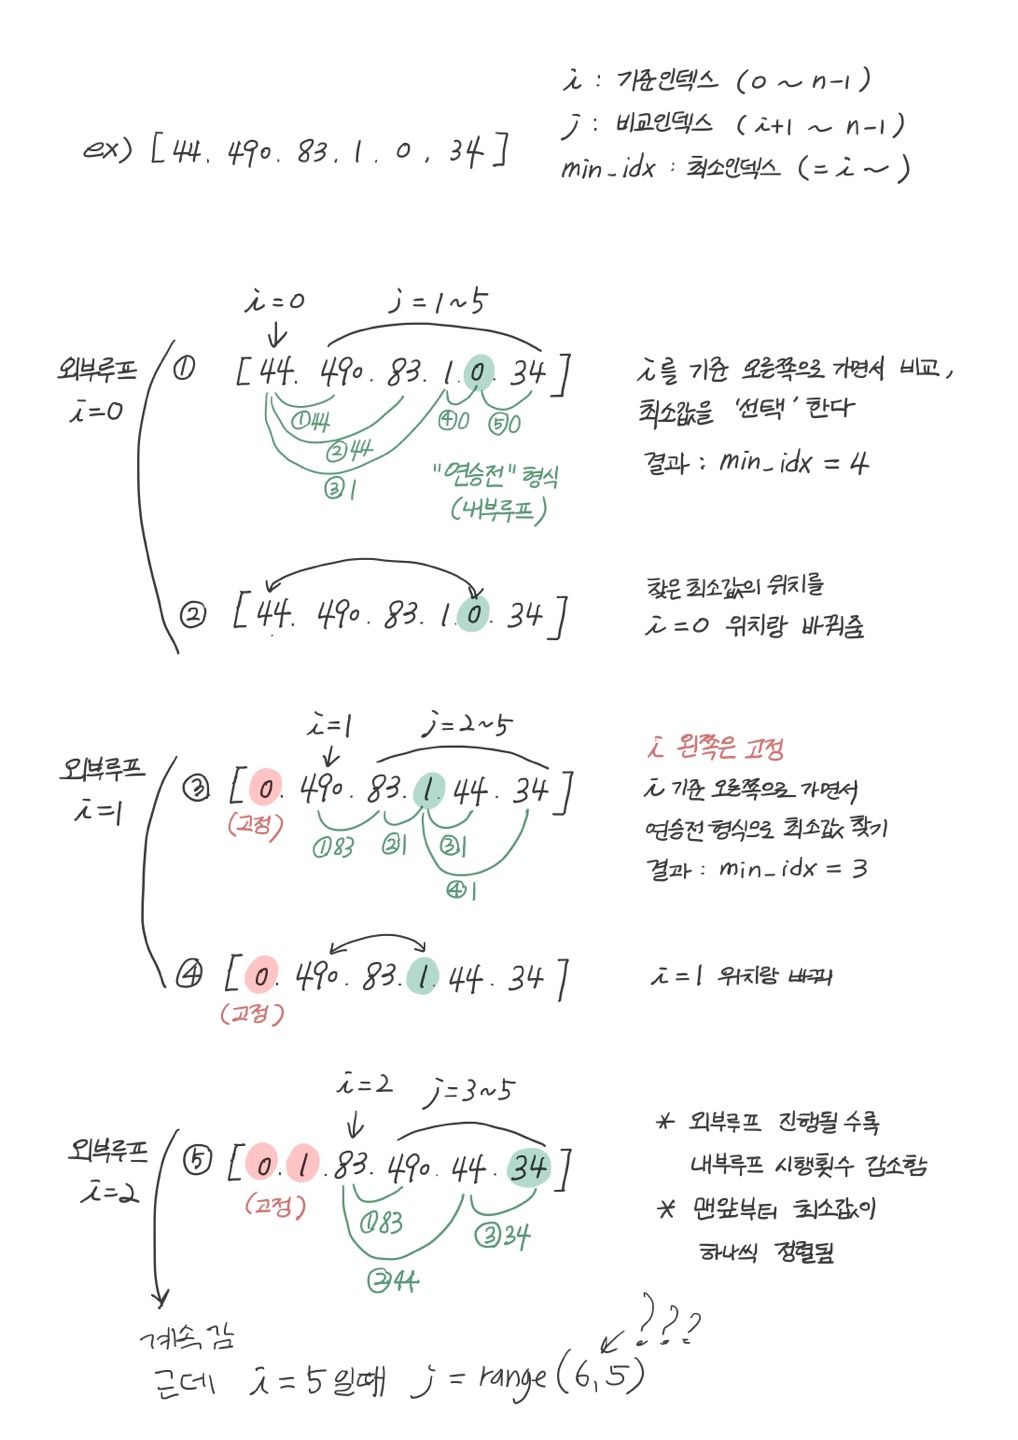 i : 기준인덱스 (0 ~ n-1)
ex) [44. 490. 83. 1. 0. 34]
j : 비교인덱스 (i+1 ~ n-1)
min_idx : 최소인덱스 (= i ~ )
i=0
j = 1~5
외부루프
i=0
① [44. 490. 83. 1. 0. 34]
①44
②44
③1
④0
⑤0
"연승전" 형식
(내부루프)
i를 기준 오른쪽으로 가면서 비교,
최소값을 '선택' 한다
결과 : min_idx = 4
② [44. 490. 83. 1. 0. 34]
찾은 최소값의 위치를
i=0 위치랑 바꿔줌
i=1
j=2~5
외부루프
i=1
③ [0. 490. 83. 1. 44. 34]
(고정)
①83
②1
③1
④1
i 왼쪽은 고정
i 기준 오른쪽으로 가면서
연승전 형식으로 최소값 찾기
결과 : min_idx = 3
④ [0. 490. 83. 1. 44. 34]
(고정)
i=1 위치랑 바꿔
i=2
j=3~5
외부루프
i=2
⑤ [0. 1. 83. 490. 44. 34]
(고정)
①83
②44
③34
* 외부루프 진행될 수록
내부루프 시행횟수 감소함
* 맨앞부터 최소값이
하나씩 정렬됨
계속 감
???
근데 i = 5 일때 j = range(6,5)